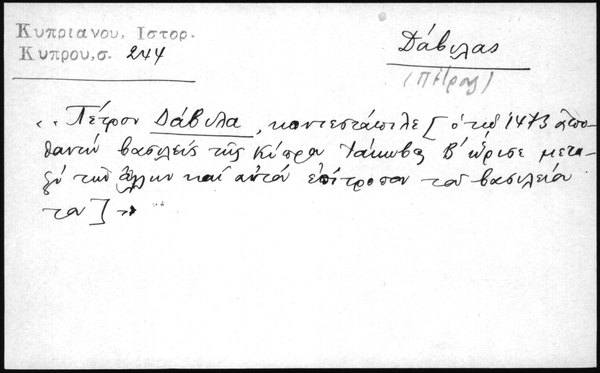 Κυπριανου, Ιστορ.
Κυπρου, σ. 244
Δάβιλας
(Πέτρος)
"Πέτρον Δάβιλα, κοντεστάπιλε [ὁ τῷ 1473 ἀπο-
θανὼν βασιλεὺς τῆς Κύπρου Ἰάκωβος Β' ὥρισε μετα-
ξὺ τῶν ἄλλων καὶ αὐτὸν ἐπίτροπον τοῦ βασιλείου
του]"